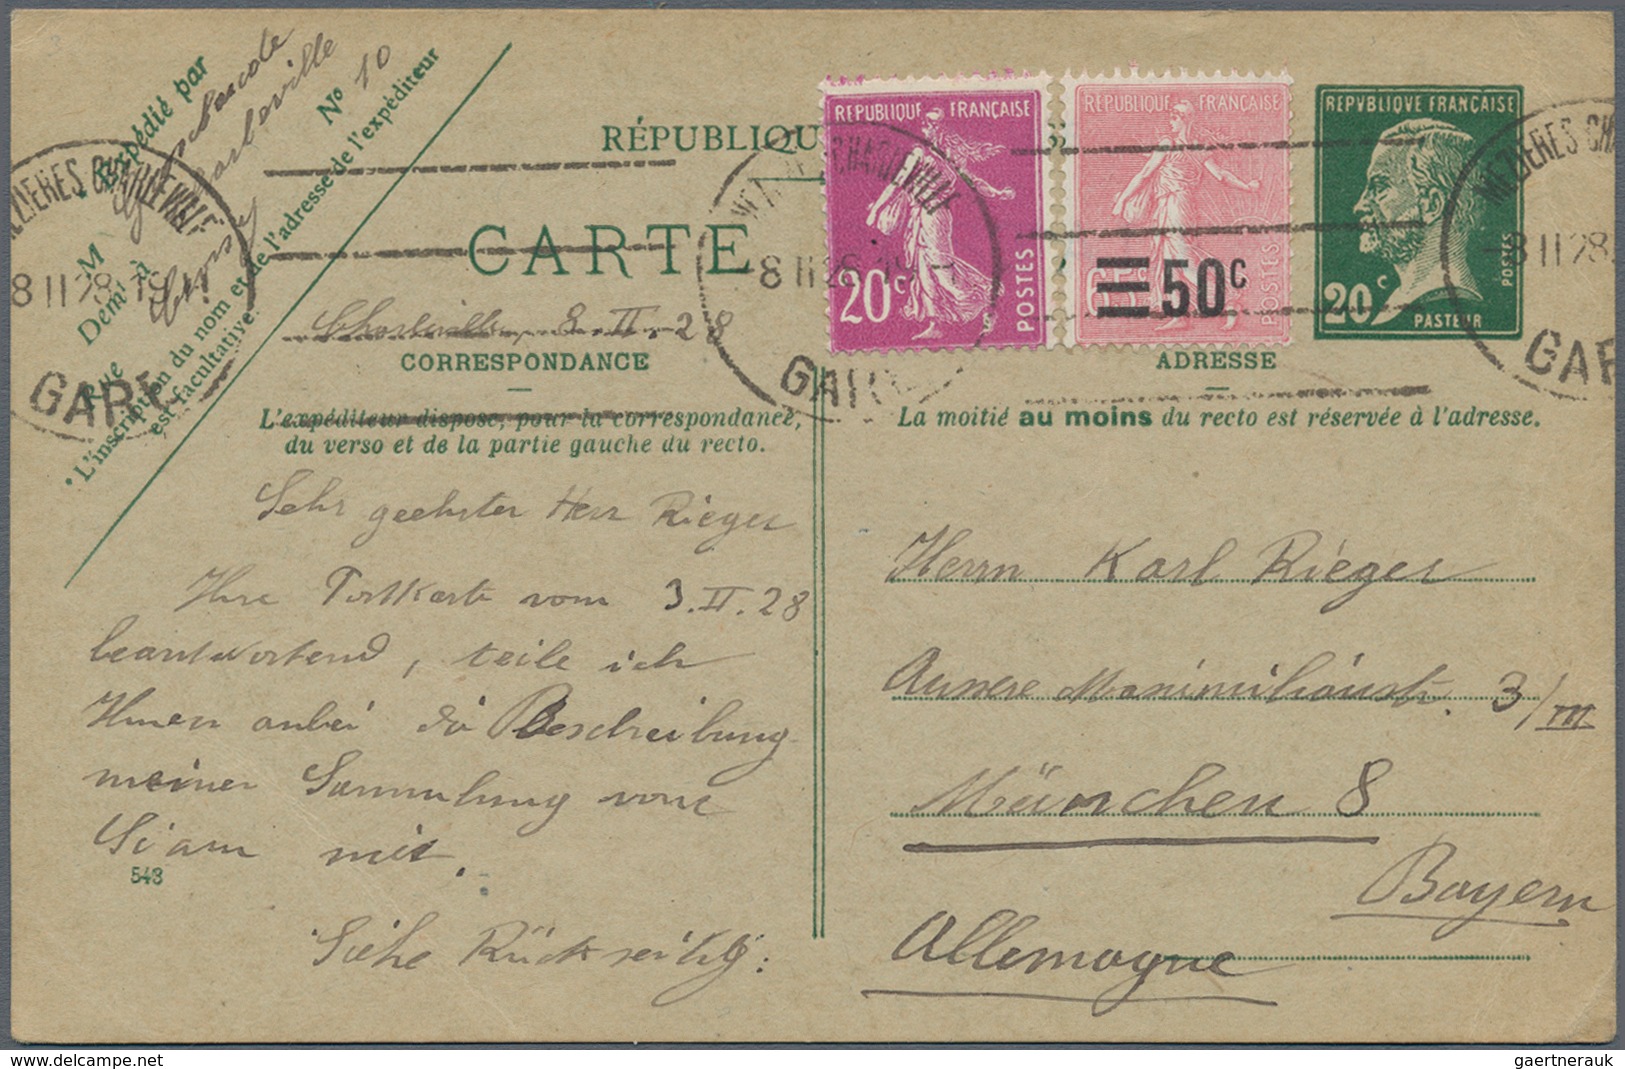 Expédié par
Charleville
N° 10
M
Demt à
Rue
• L'inscription du nom et de l'adresse de l'expéditeur
est facultative.
MEZIERES CHARLEVILLE
8 II 28
GARE
RÉPUBLIQU
CARTE
Charleville, 8.II.28
CORRESPONDANCE
L'expéditeur dispose, pour la correspondance,
du verso et de la partie gauche du recto.
RÉPUBLIQUE FRANÇAISE
20c
POSTES
RÉPUBLIQUE FRANÇAISE
65c
50c
POSTES
REPVBLIQVE FRANÇAISE
20c
POSTES
PASTEUR
MEZIERES CHARLEVILLE
8 II 28
GARE
MEZIERES CHA
8 II 28
GAR
ADRESSE
La moitié au moins du recto est réservée à l'adresse.
Sehr geehrter Herr Rieger
Ihre Postkarte vom 3.II.28
beantwortend, teile ich
Ihnen anbei die Beschreibung
meiner Sammlung von
Siam mit.
543
Siehe Rückseitig:
Herrn Karl Rieger
Äussere Maximilianstr. 3/III
München 8
Bayern
Allemagne
gaertnerauk @ delcampe.net